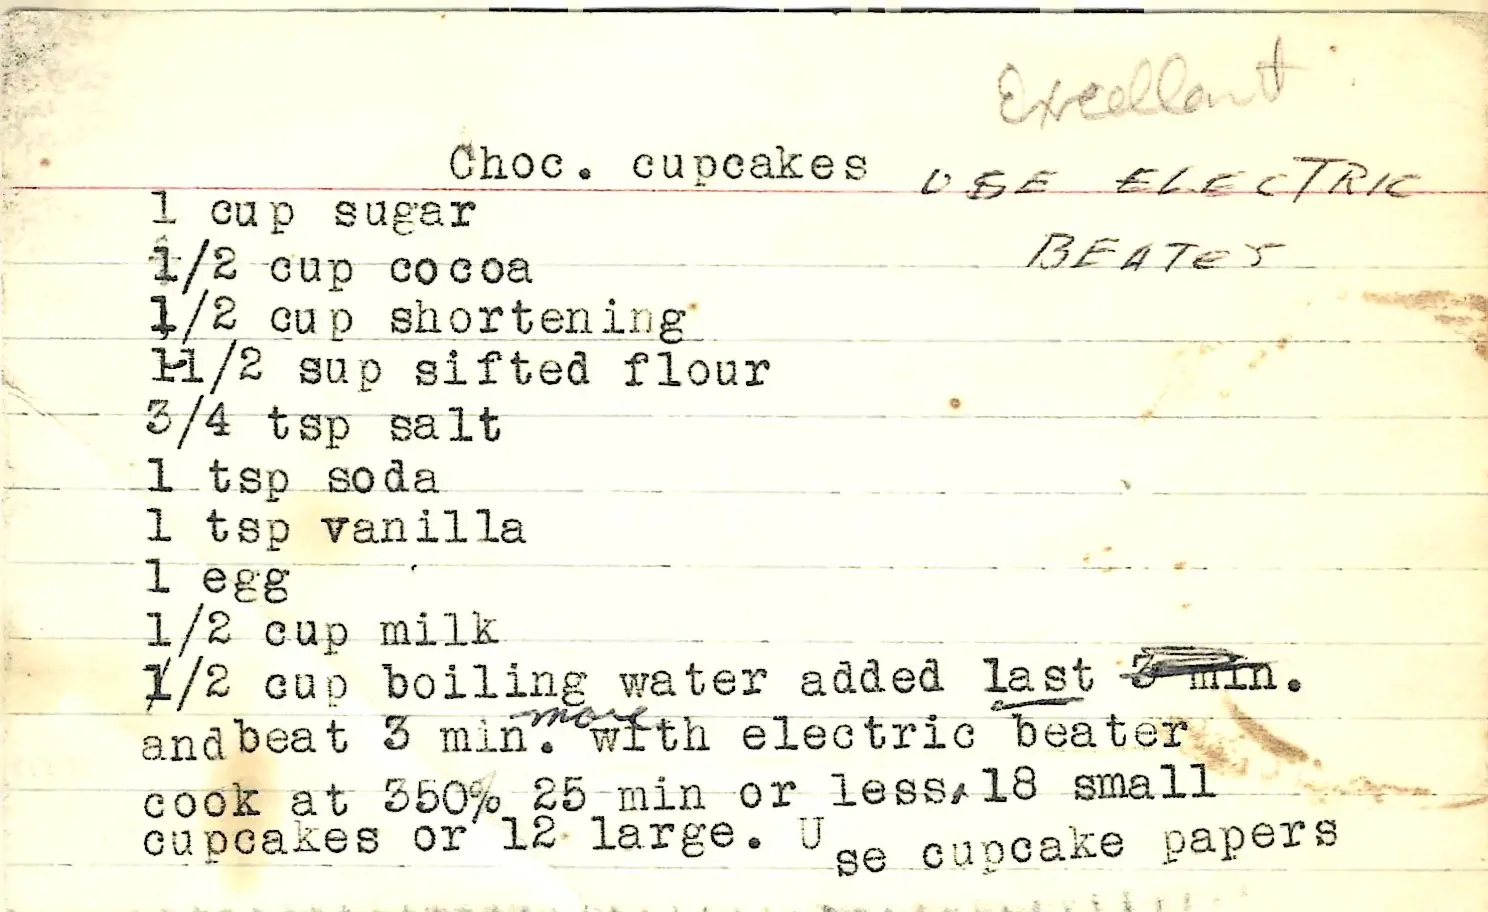 Excellant
Choc. cupcakes USE ELECTRIC
BEATer
1 cup sugar
1/2 cup cocoa
1/2 cup shortening
11/2 sup sifted flour
3/4 tsp salt
1 tsp soda
1 tsp vanilla
1 egg
1/2 cup milk
1/2 cup boiling water added last 3 min.
andbeat 3 min. more with electric beater
cook at 350% 25 min or less, 18 small
cupcakes or 12 large. Use cupcake papers